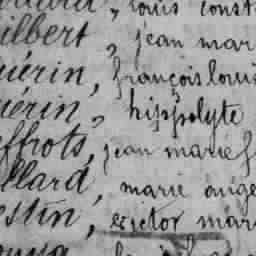 louis const
ilbert, jean mar
uérin, françois louis
uérin, hippolyte
effrots, jean marie f
llard, marie ange
estin, mar